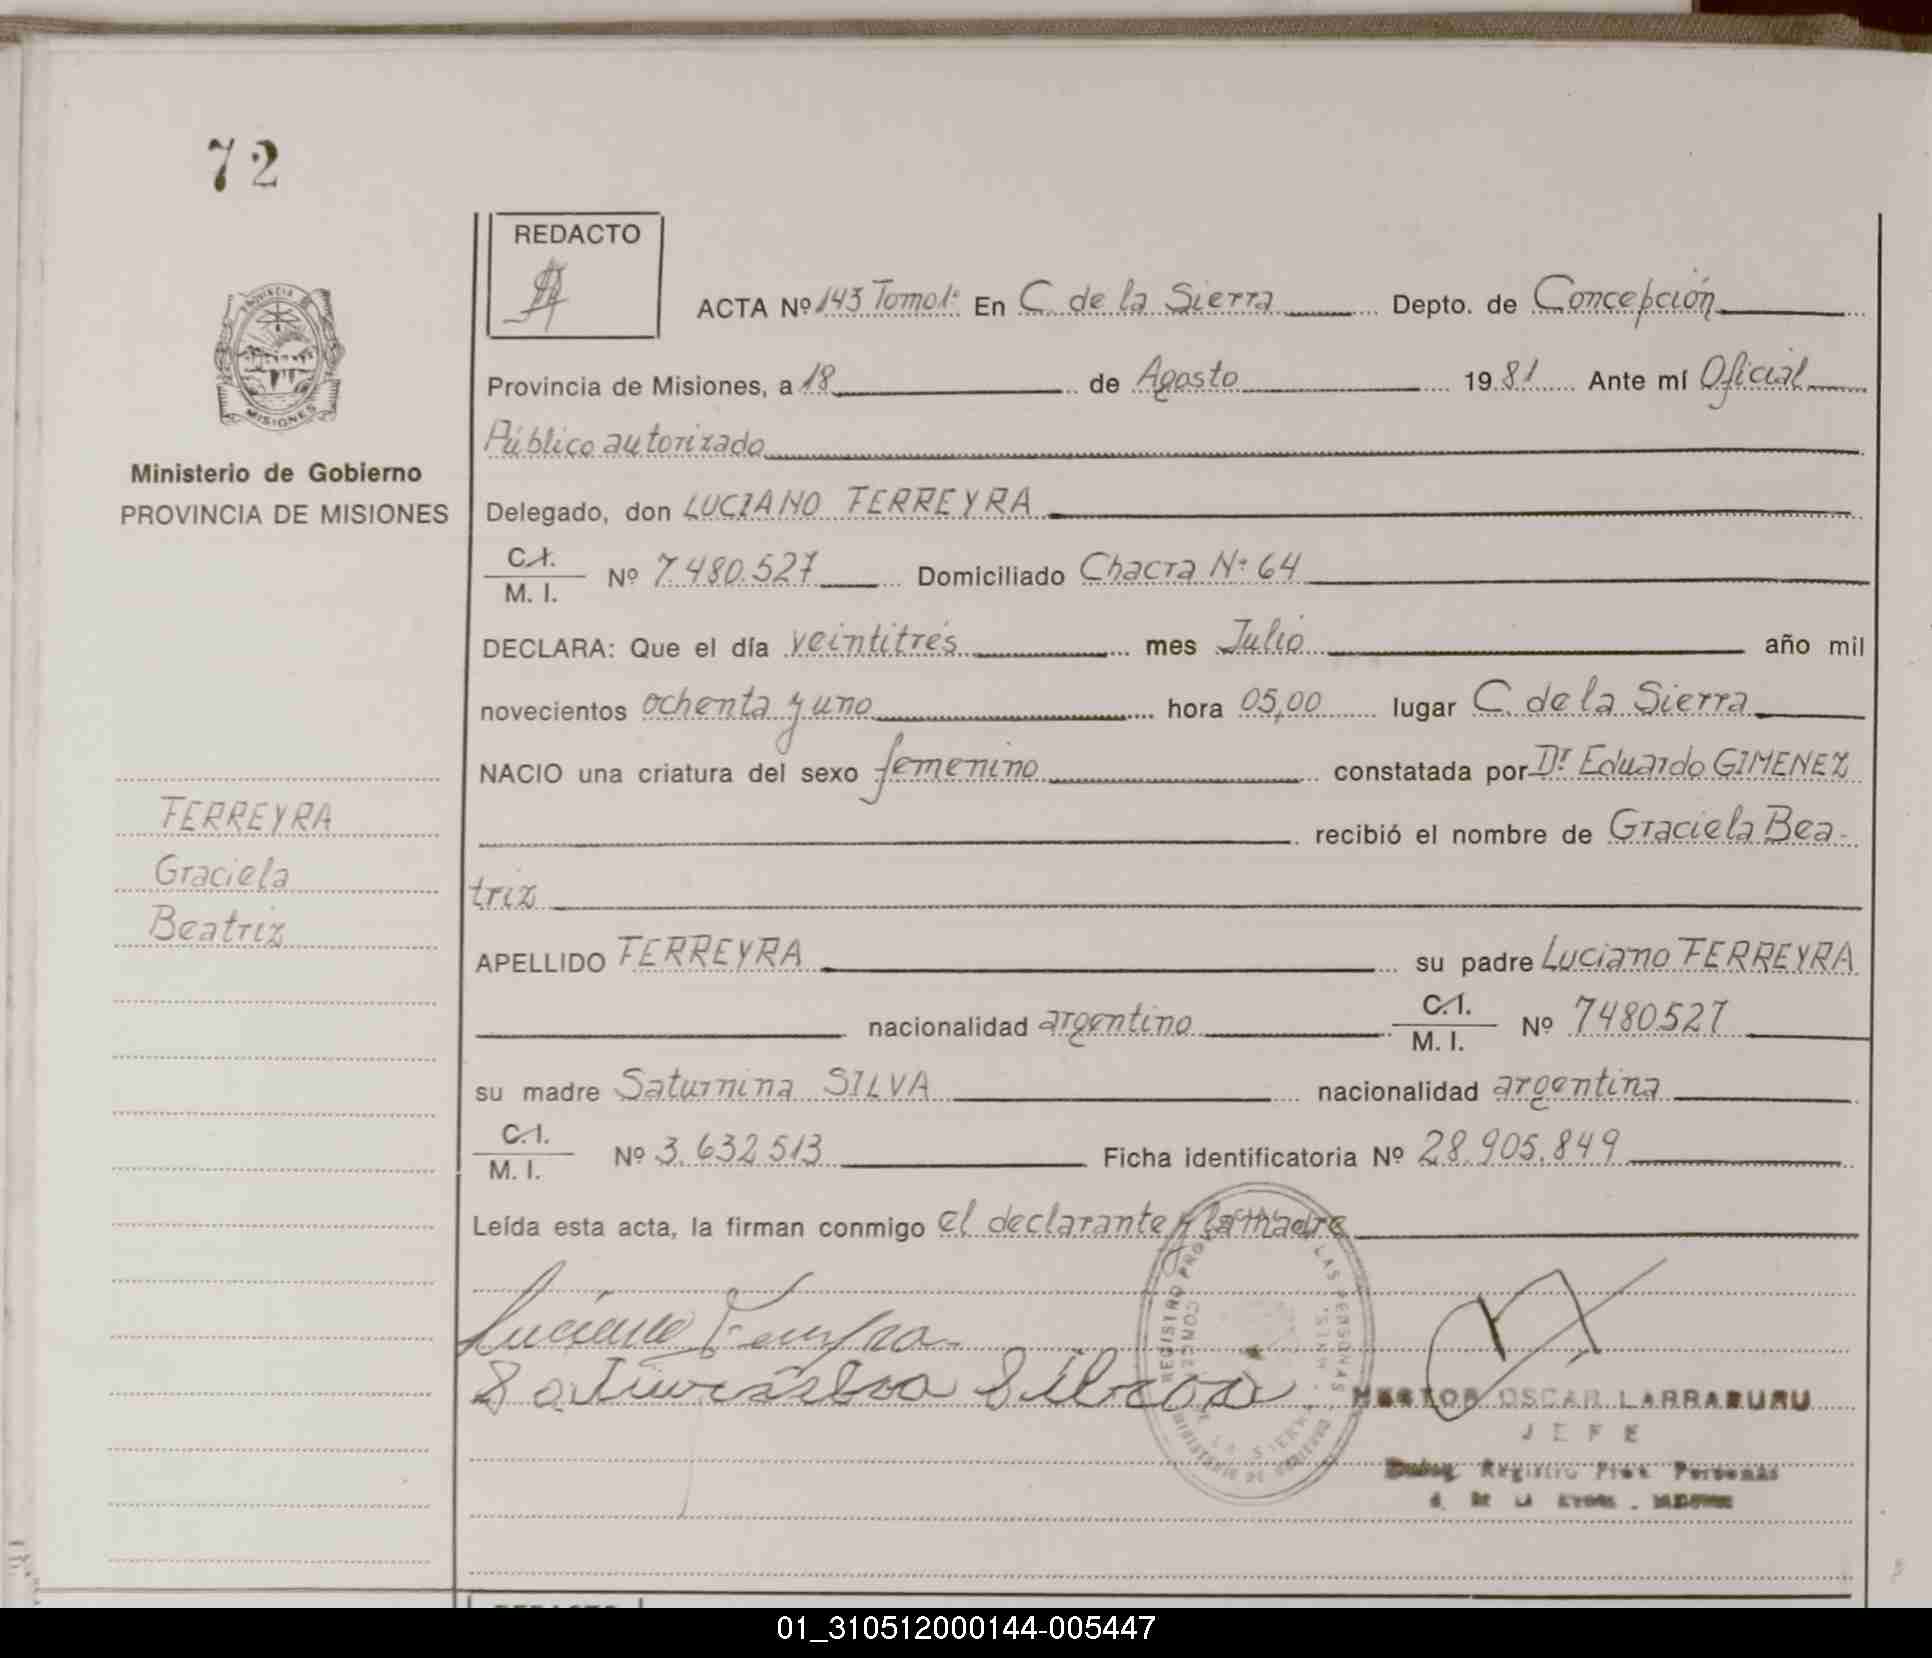 72
REDACTO
ACTA Nº 143 Tomo 1º En C. de la Sierra Depto. de Concepción
Provincia de Misiones, a 18 de Agosto 1981 Ante mí Oficial
Público autorizado
Delegado, don LUCIANO FERREYRA
C.I. / M. I. Nº 7.480.527 Domiciliado Chacra Nº 64
DECLARA: Que el día veintitrés mes Julio año mil
novecientos ochenta y uno hora 05,00 lugar C. de la Sierra
NACIO una criatura del sexo femenino constatada por Dr Eduardo GIMENEZ
recibió el nombre de Graciela Bea-
triz
APELLIDO FERREYRA su padre Luciano FERREYRA
nacionalidad argentino C.I. / M. I. Nº 7480.527
su madre Saturnina SILVA nacionalidad argentina
C.I. / M. I. Nº 3.632.513 Ficha identificatoria Nº 28.905.849
Leída esta acta, la firman conmigo el declarante y la madre
Luciano Ferreyra
Silva
HESTOR OSCAR LARRABURU
JEFE
Registro Personas
DE LA
REGISTRO LAS PERSONAS
LA SIERRA
MINISTERIO DE GOBIERNO
PROVINCIA
MISIONES
Ministerio de Gobierno
PROVINCIA DE MISIONES
FERREYRA
Graciela
Beatriz
01_310512000144-005447